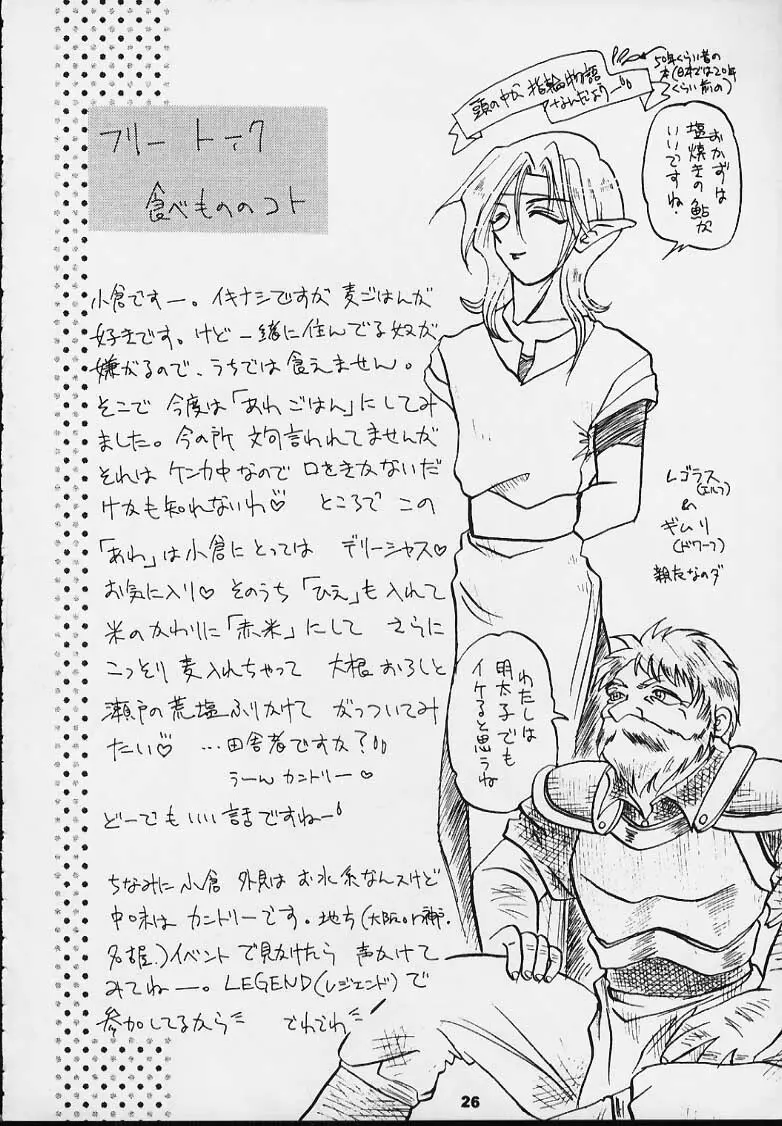 フリートーク
食べもののコト
小倉ですー。イキナシですが麦ごはんが
好きです。けど一緒に住んでる奴が
嫌がるので、うちでは食えません。
そこで今度は「あわごはん」にしてみ
ました。今の所文句言われてませんが
それはケンカ中なので口をきかないだ
けかも知れないわ♡ ところでこの
「あわ」は小倉にとってはデリーシャス♡
お気に入り♡ そのうち「ひえ」も入れて
米のかわりに「赤米」にして さらに
こっそり麦入れちゃって 大根おろしと
瀬戸の荒塩ふりかけて がっついてみ
たい♡ …田舎者ですか?
うーんカントリー♡
どーでもいい話ですねー
ちなみに小倉 外見はお水系なんスけど
中味はカントリーです。地方(大阪or神戸.
名古屋.)イベントで見かけたら 声かけて
みてねー。LEGEND(レジェンド)で
参加してるから でわでわ
頭の中が指輪物語
なんだよりー
50年くらい昔の
本(日本では20年
くらい前の)
おかずは
塩焼きの鮎が
いいですね.
レゴラス
(エルフ)
&
ギムリ
(ドワーフ)
親友なのダ
わたしは
明太子でも
イケると思うね
26